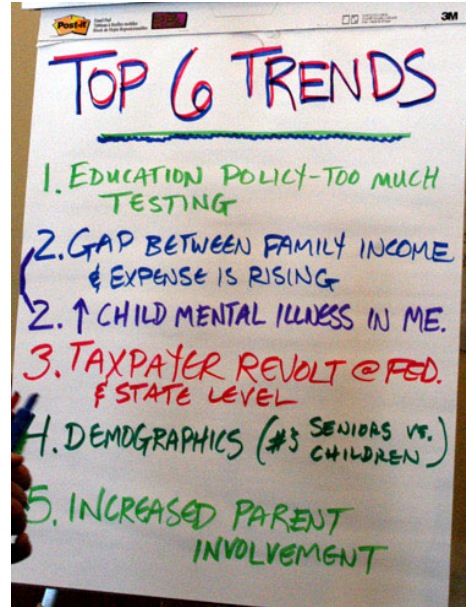 Post-it
3M
TOP 6 TRENDS
1. EDUCATION POLICY-TOO MUCH
TESTING
2. GAP BETWEEN FAMILY INCOME
& EXPENSE IS RISING
2. ↑ CHILD MENTAL ILLNESS IN ME.
3. TAXPAYER REVOLT @ FED.
& STATE LEVEL
4. DEMOGRAPHICS (#'s SENIORS VS.
CHILDREN)
5. INCREASED PARENT
INVOLVEMENT